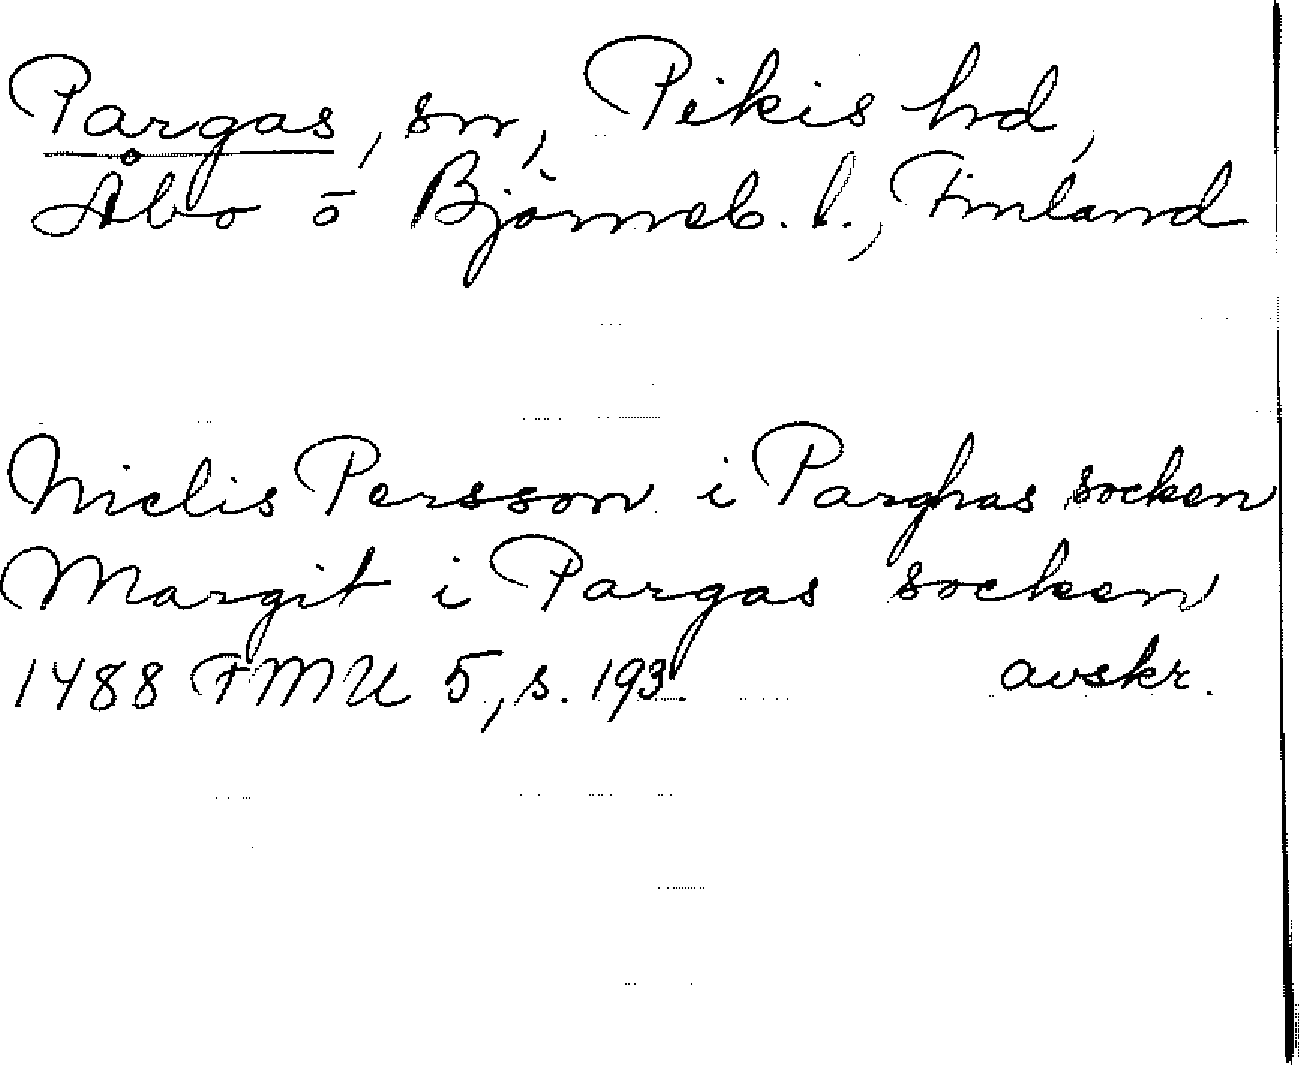 Pargas, sn, Pikis hd,
Åbo o Björneb. l., Finland
Nielis Persson i Parghas socken
Margit i Pargas socken
1488 FMU 5, s. 193. avskr.